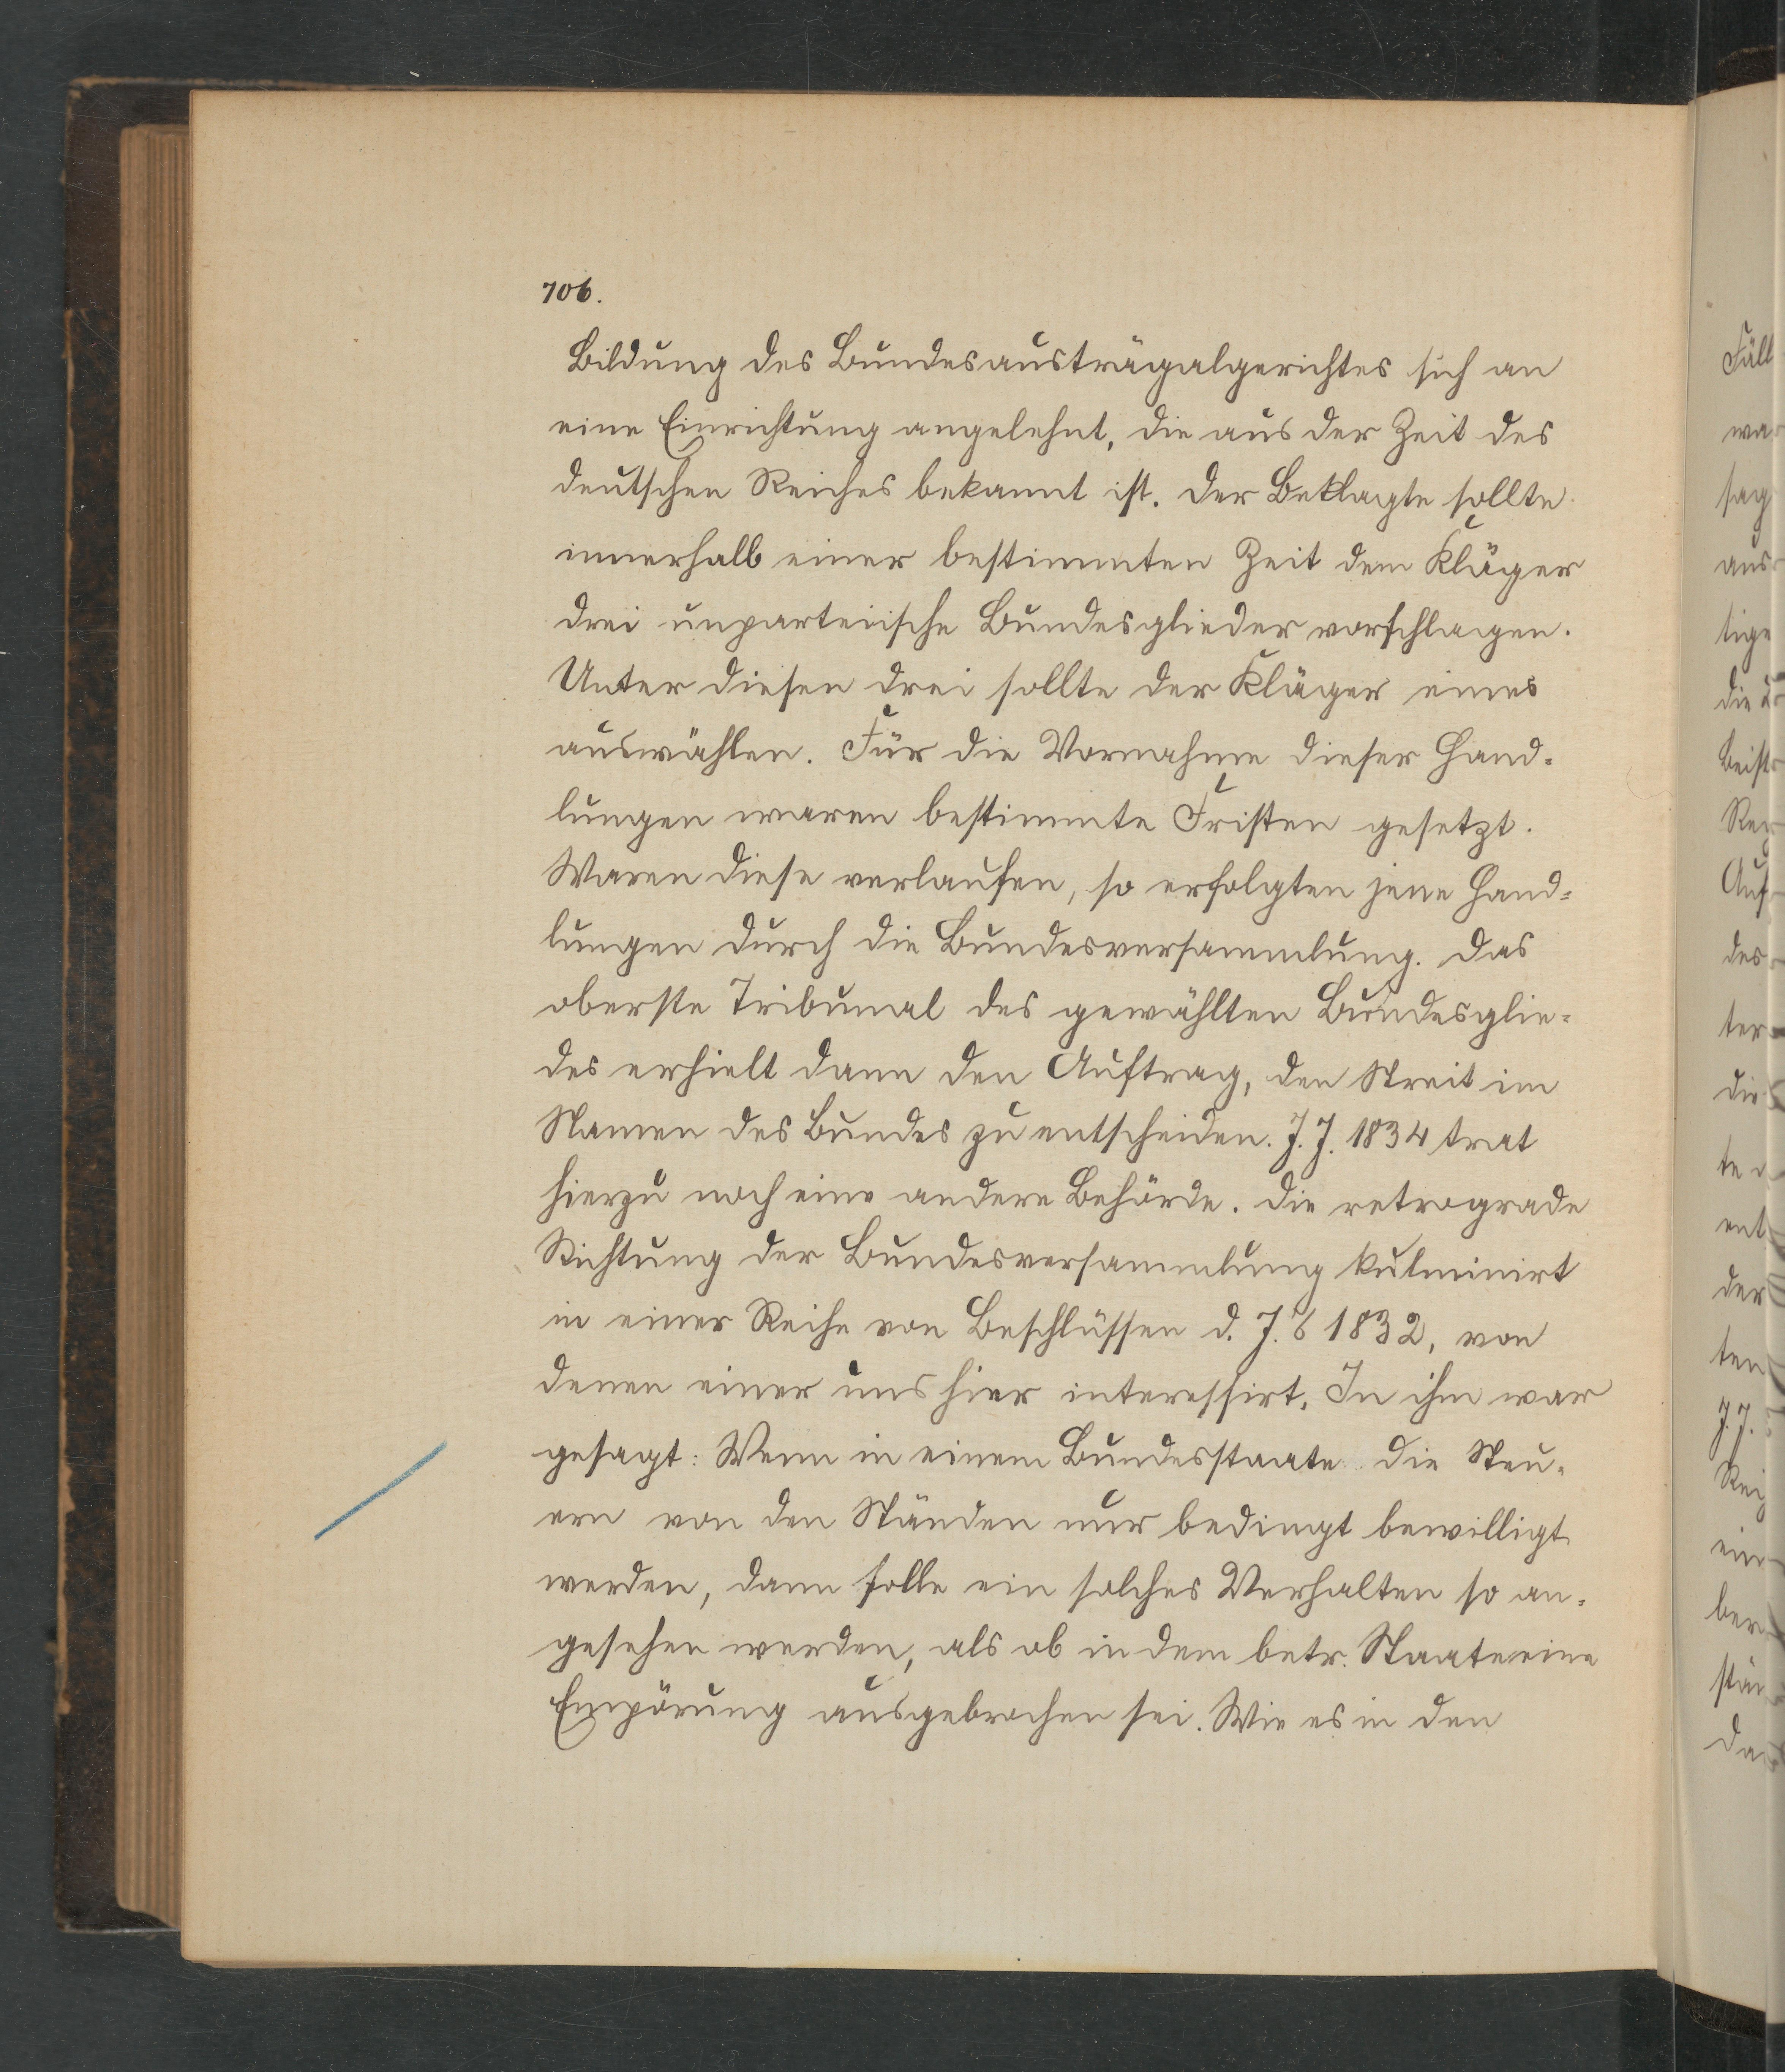 706.
Bildung des Bundesausträgalgerichtes sich an
eine Einrichtung angelehnt, die aus der Zeit des
deutschen Reiches bekannt ist. Der Beklagte sollte
innerhalb einer bestimmten Zeit dem Kläger
drei unparteiische Bundesglieder vorschlagen.
Unter diesen drei sollte der Kläger eines
auswählen. Für die Vornahme dieser Hand-
lungen waren bestimmte Fristen gesetzt.
Waren diese verlaufen, so erfolgten jene Hand-
lungen durch die Bundesversammlung. Das
oberste Tribunal des gewählten Bundesglie-
des erhielt dann den Auftrag, den Streit im
Namen des Bundes zu entscheiden. J. J. 1834 trat
hierzu noch eine andere Behörde. Die retrograde
Richtung der Bundesversammlung kulminirt
in einer Reihe von Beschlüssen d. J.s 1832, von
denen einer uns hier interessirt. In ihm war
gesagt: Wenn in einem Bundesstaate die Steu-
ern von den Ständen nur bedingt bewilligt
werden, dann solle ein solches Verhalten so an-
gesehen werden, als ob in dem betr. Staate eine
Empörung ausgebrochen sei. Wie es in den